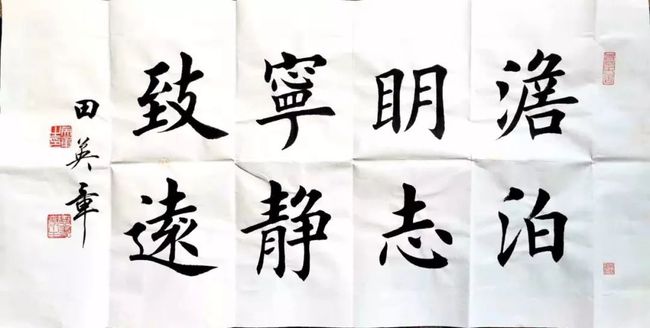 澹泊
眀志
寧静
致遠
田英章